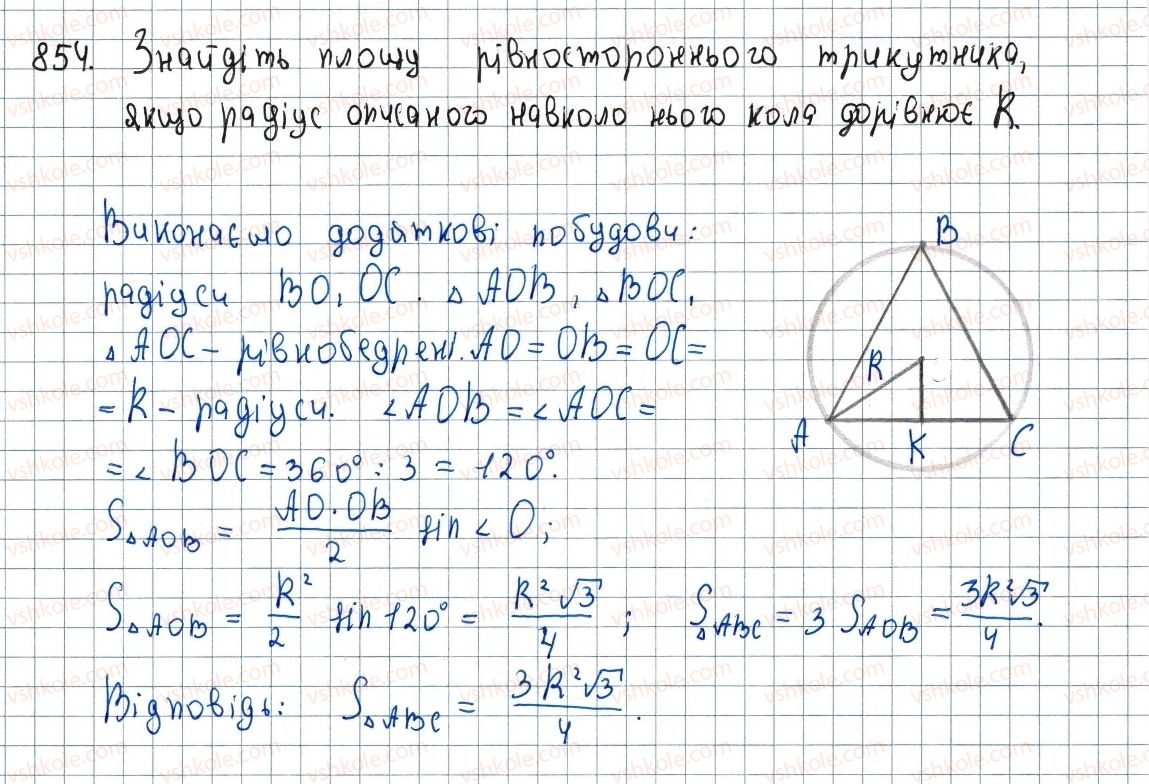 854. Знайдіть площу рівностороннього трикутника,
якщо радіус описаного навколо нього кола дорівнює R.
Виконаємо додаткові побудови:
радіуси BO, OC. △AOB, △BOC,
△AOC – рівнобедрені. AO = OB = OC =
= R – радіуси. ∠AOB = ∠AOC =
= ∠BOC = 360° : 3 = 120°.
S△AOB = AO · OB / 2 sin ∠O;
S△AOB = R² / 2 sin 120° = R²√3 / 4 ; S△ABC = 3 SAOB = 3R²√3 / 4.
Відповідь: S△ABC = 3R²√3 / 4.
B
R
A
K
C
vshkole.com